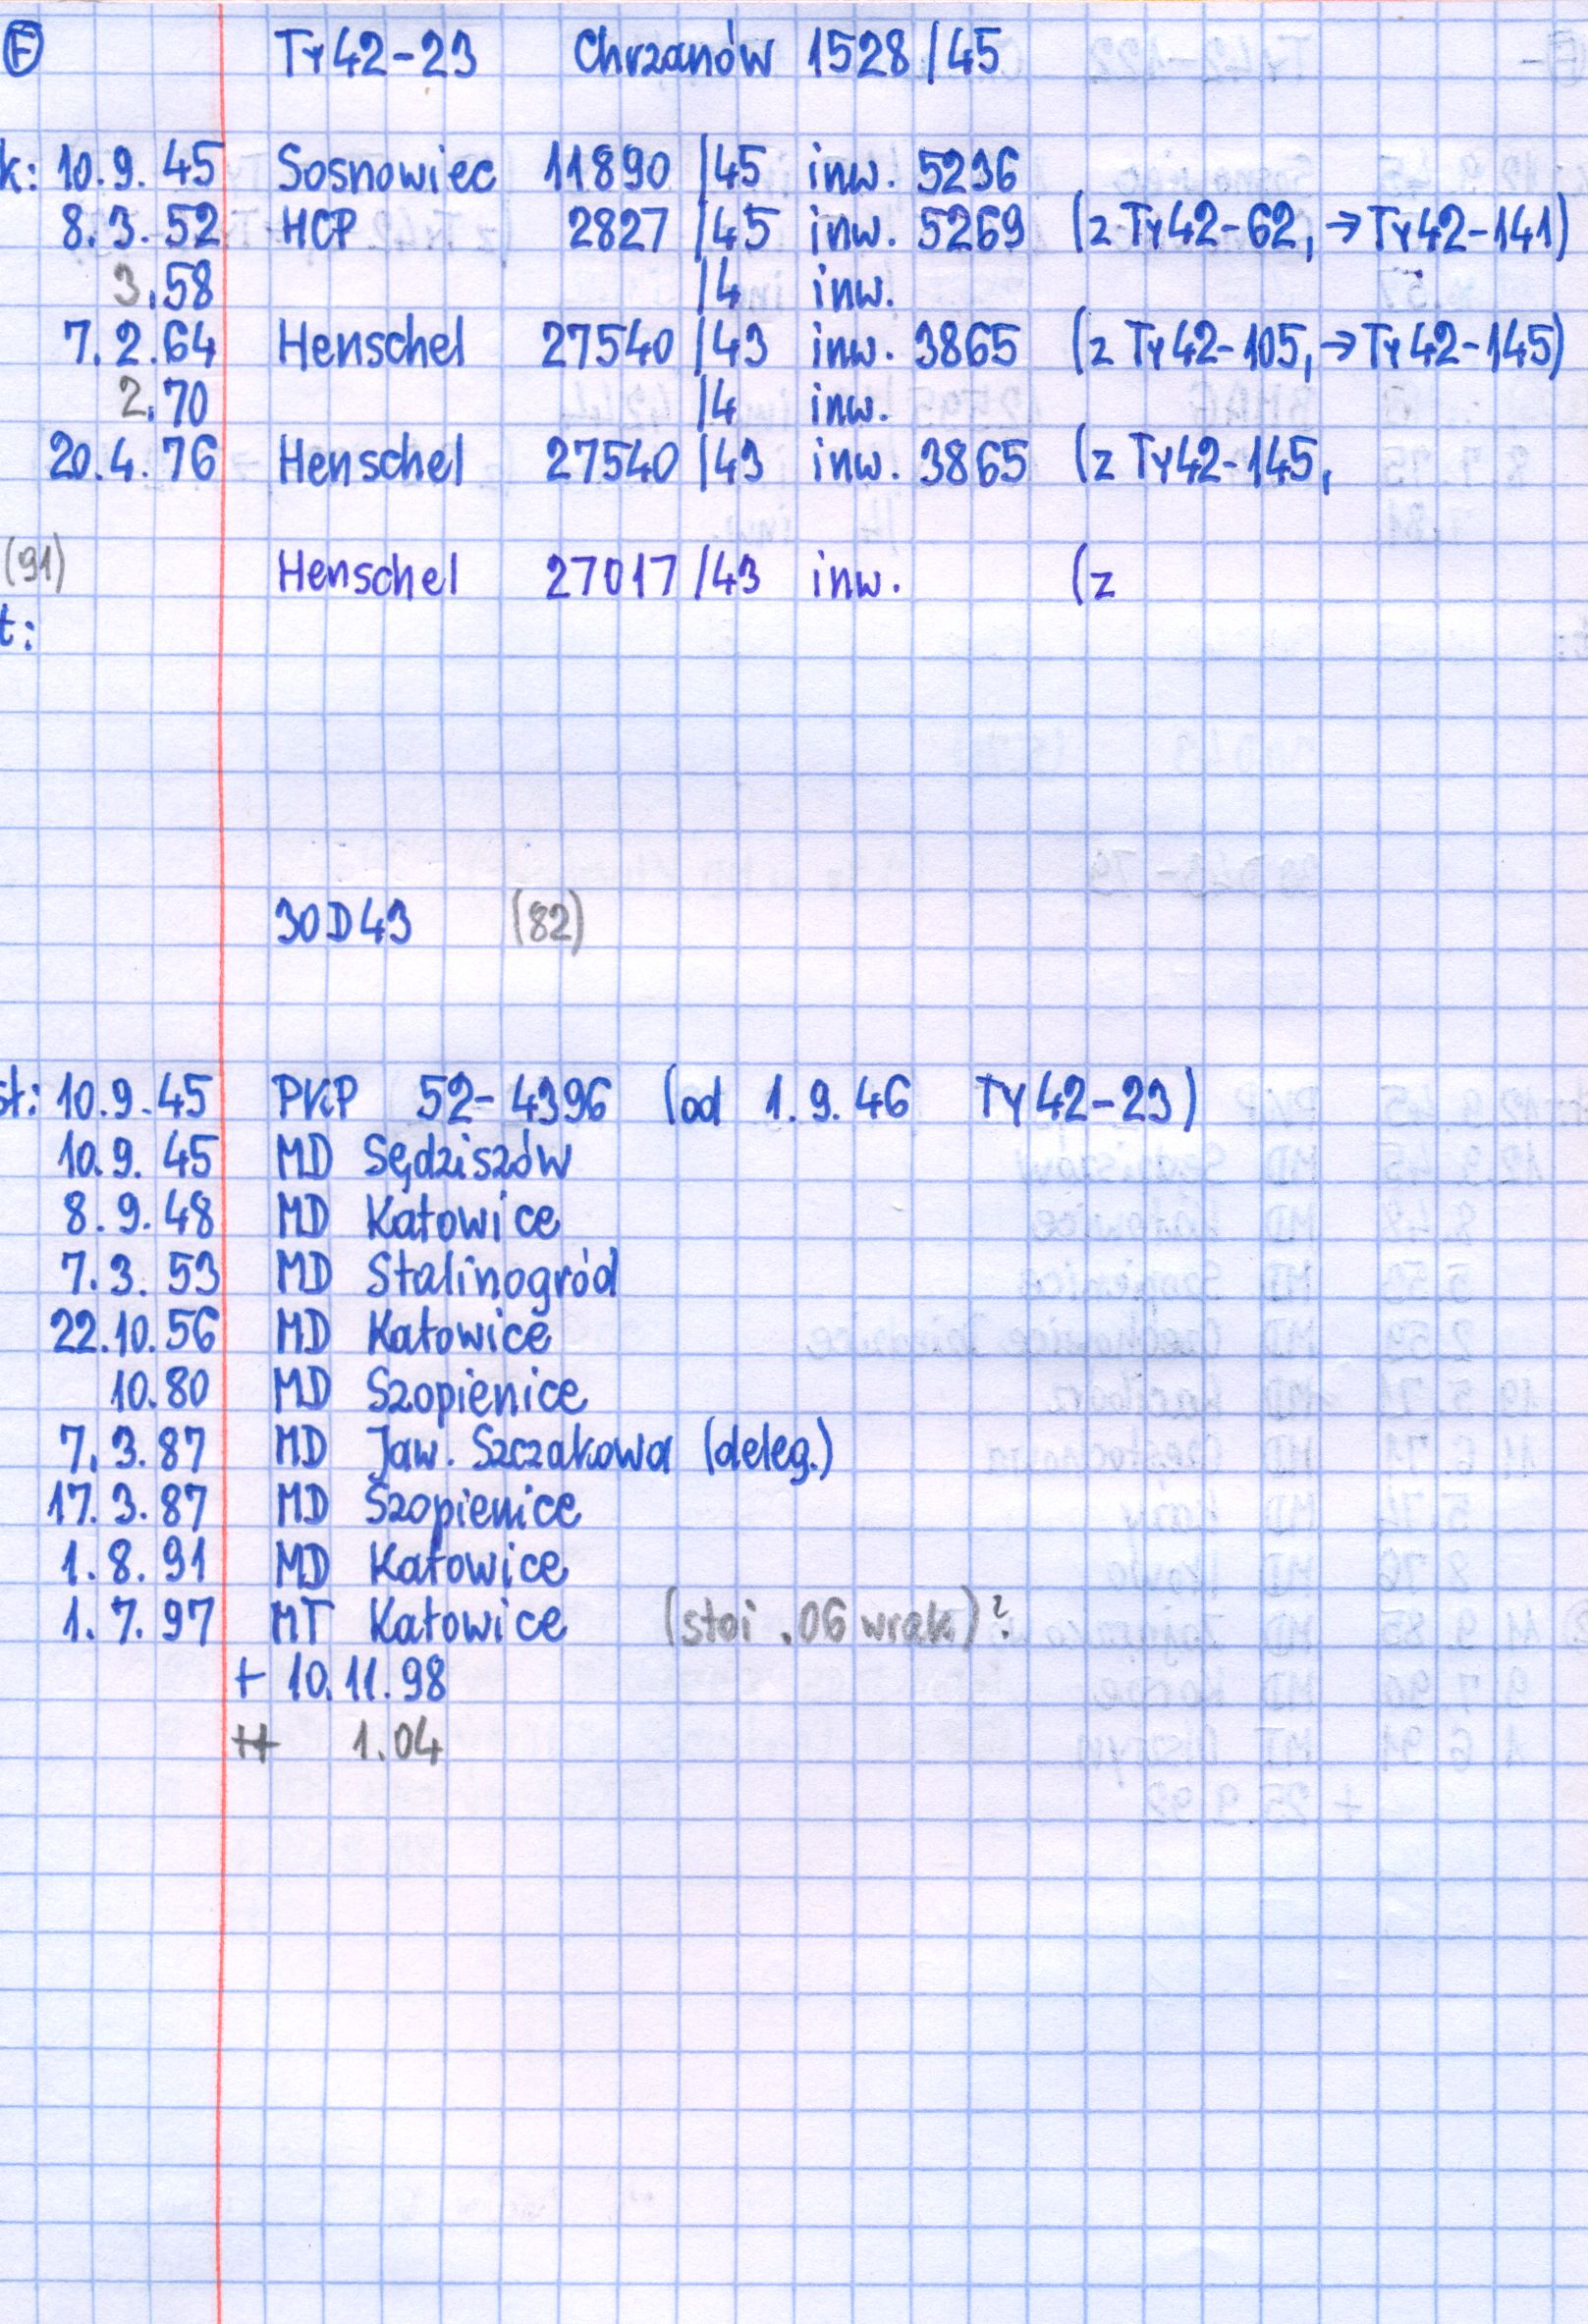 F Ty42-23 Chrzanów 1528/45
k: 10.9.45 Sosnowiec 11890/45 inw. 5236
8.3.52 HCP 2827/45 inw. 5269 (z Ty42-62, →Ty42-141)
3.58 /4 inw.
7.2.64 Henschel 27540/43 inw. 3865 (z Ty42-105, →Ty42-145)
2.70 /4 inw.
20.4.76 Henschel 27540/43 inw. 3865 (z Ty42-145,
(91) Henschel 27017/43 inw. (z
t:
30D43 (82)
st: 10.9.45 PKP 52-4396 (od 1.9.46 Ty42-23)
10.9.45 MD Sędziszów
8.9.48 MD Katowice
7.3.53 MD Stalinogród
22.10.56 MD Katowice
10.80 MD Szopienice
7.3.87 MD Jaw. Szczakowa (deleg.)
17.3.87 MD Szopienice
1.8.91 MD Katowice
1.7.97 MT Katowice (stoi .06 wrak)?
+ 10.11.98
++ 1.04